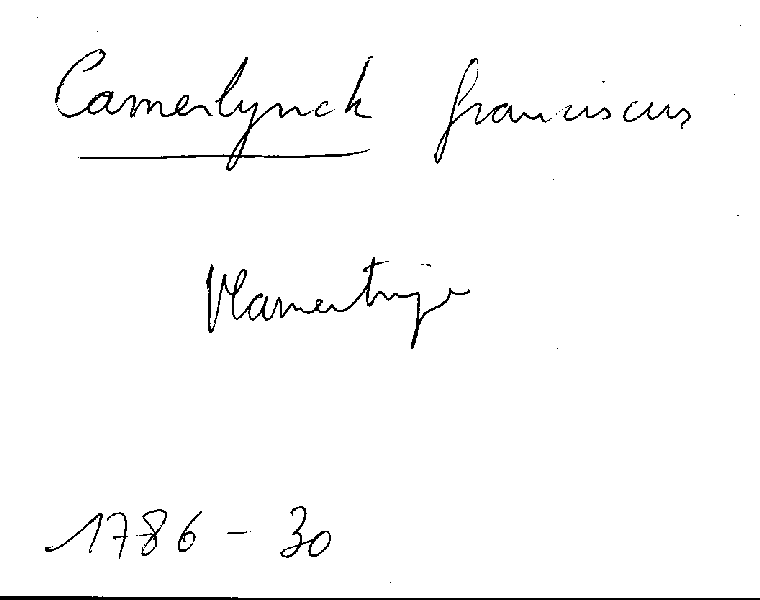 Camerlynck franciscus
Vlamertinge
1786 - 30